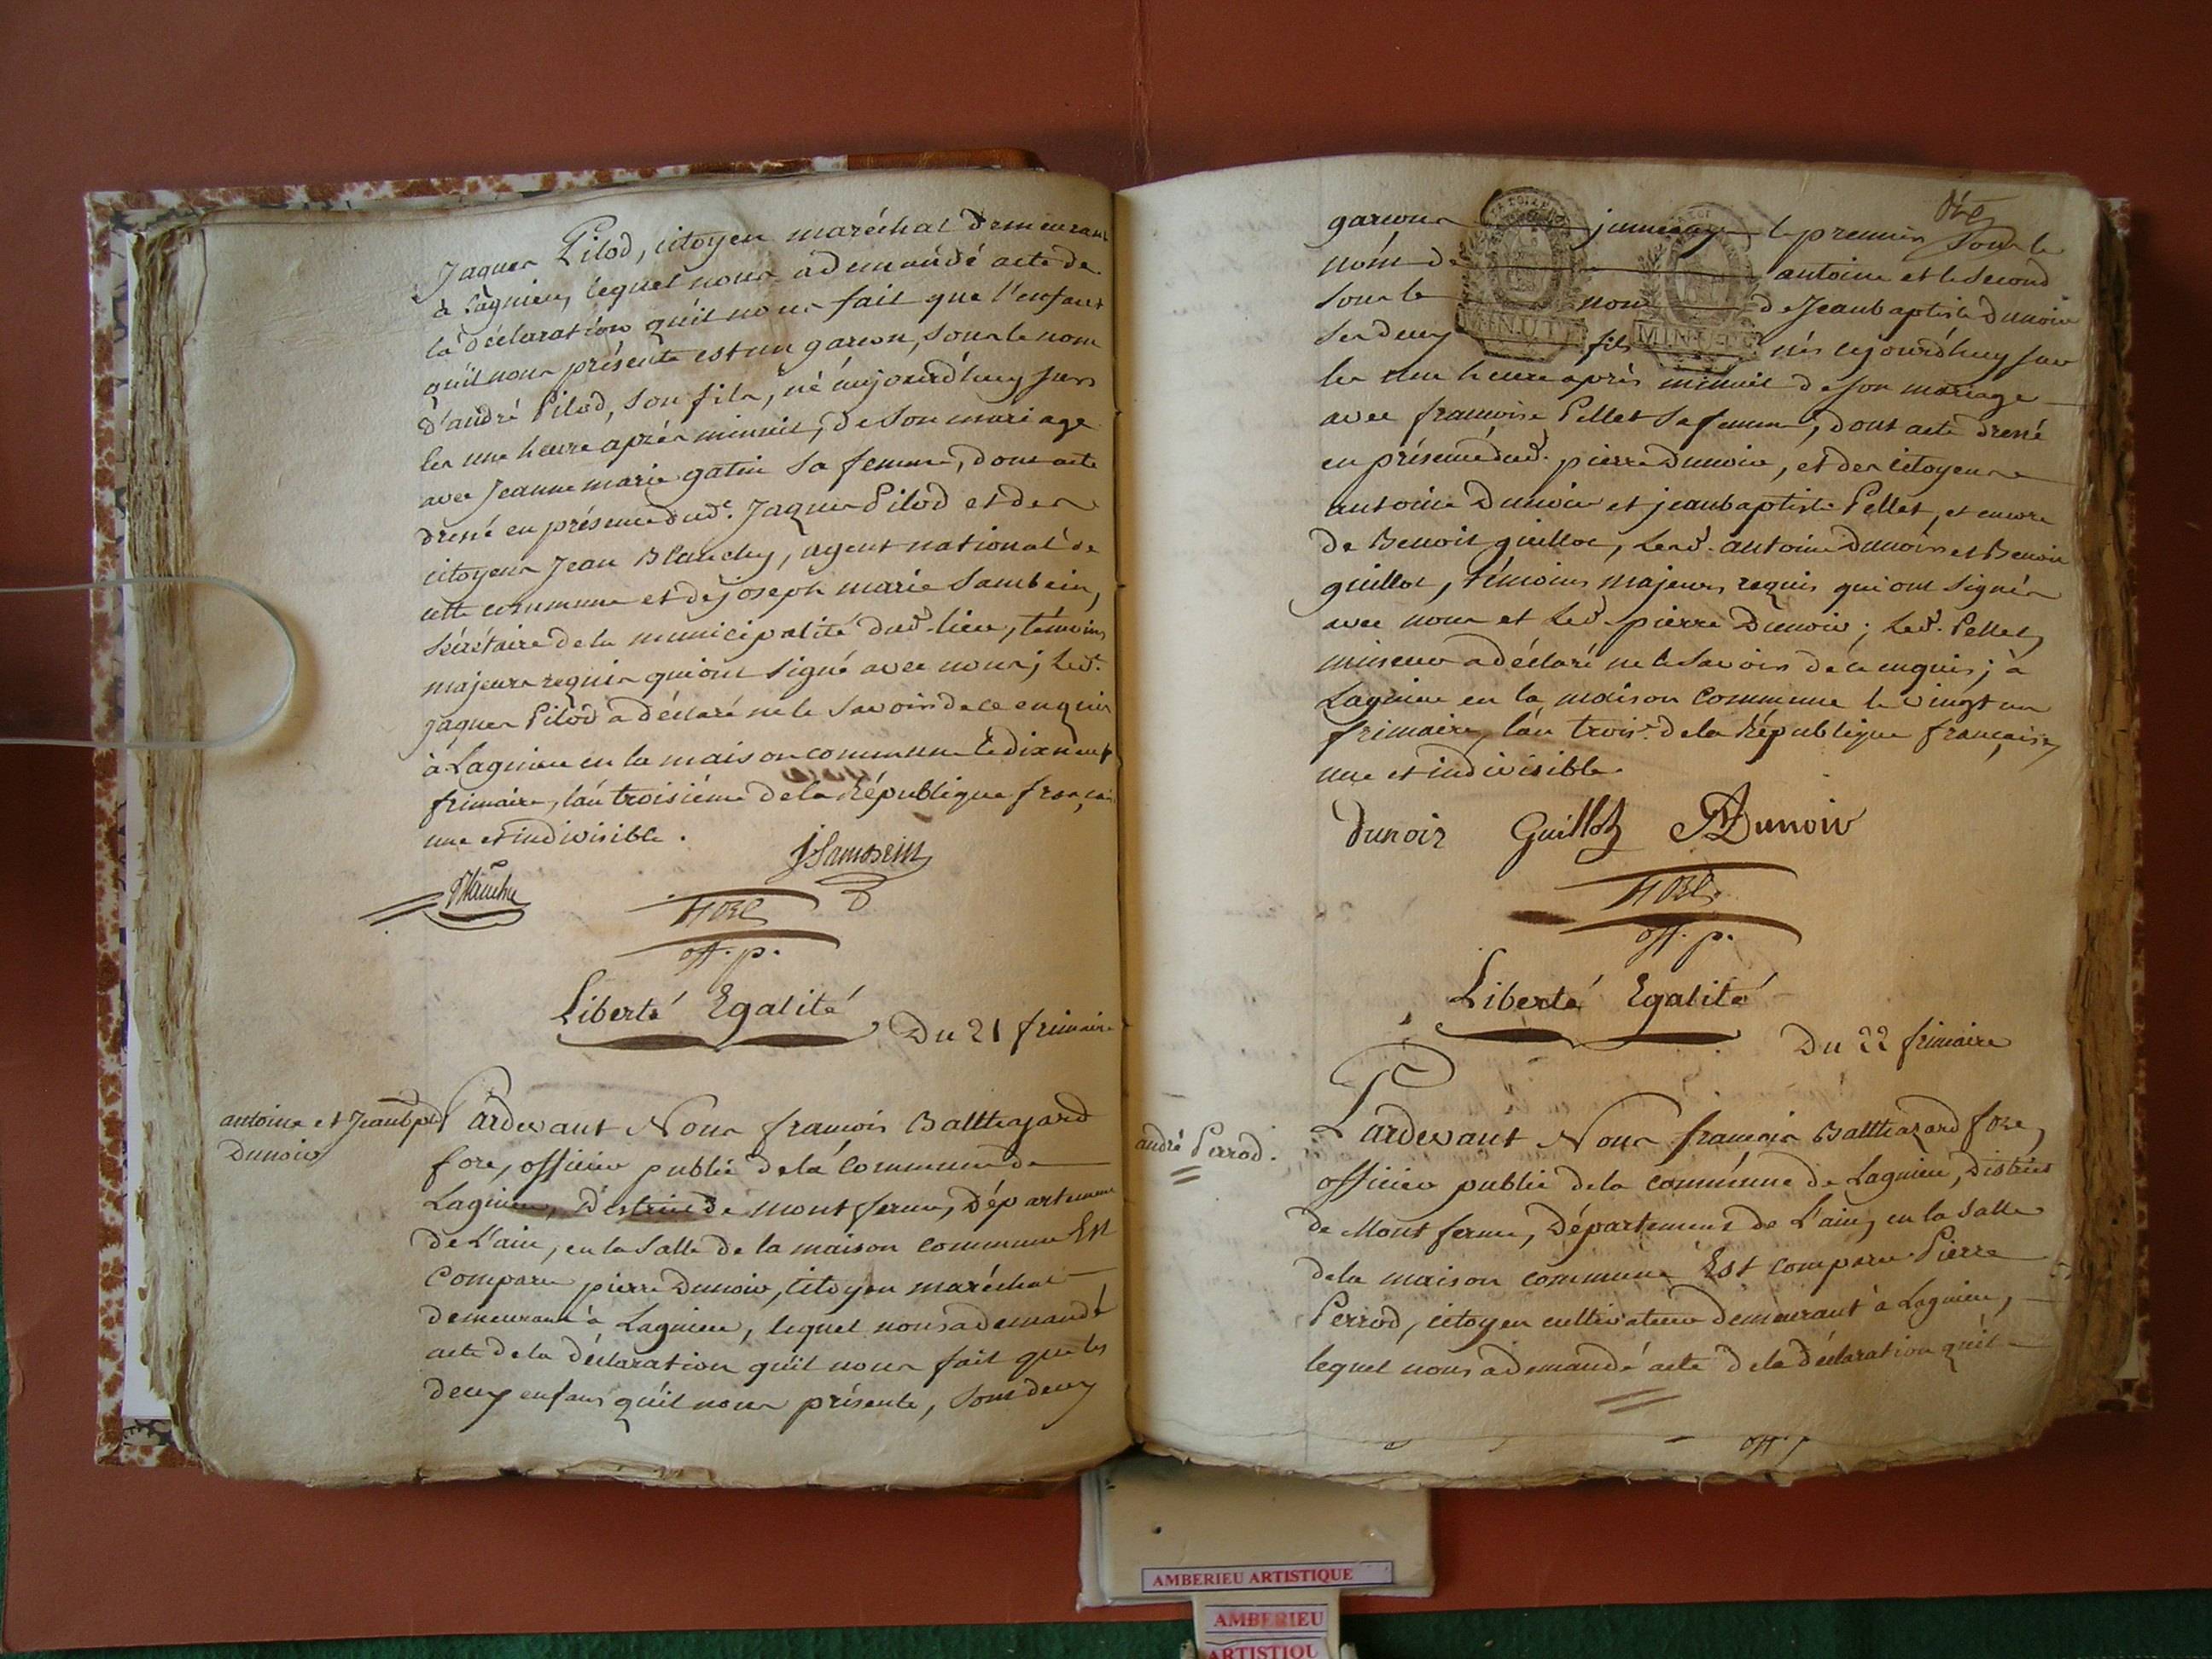 Jaques Pilod, citoyen maréchal demeurant
à Lagnieu, lequel nous a demandé acte de
la déclaration qu'il nous fait que l'enfant
qu'il nous présente est un garcon, sous le nom
d'andré Pilod, son fils, né aujourd'huy sur
les une heure après minuit, de son mariage
avec Jeanne marie gatin sa femme, dont acte
dressé en présence dud. Jaques Pilod et des
citoyens Jean Blanchy, agent national de
cette commune et de joseph marie Sambein,
sécrétaire de la municipalité dud. lieu, témoins
majeurs requis qui ont signé avec nous; led.
jaques Pilod a déclaré ne le savoir de ce enquis
à Lagnieu en la maison commune le dixneuf
frimaire, l'an troisième de la République françai
une et indivisible.
JSambein
fore
off. p.
Liberté Egalité
Du 21 frimaire
antoine et Jean bpte
Dunoir
Pardevant Nous francois Balthazard
fore, officier public de la Commune de
Lagnieu, District de mont ferme, Département
de L'ain, en la Salle de la maison commune Est
Comparu pierre Dunoir, citoyen maréchal
demeurant à Lagnieu, lequel nous a demandé
acte de la déclaration qu'il nous fait que les
deux enfans qu'il nous présente, sont deux
garcons jumeaux le premier sous le
nom de antoine et le second
sous le nom de Jean baptiste Dunoir
ses deux fils nés cejourd'huy sur
les une heure après minuit de son mariage
avec francoise Pellet sa femme, dont acte dressé
en présence dud. pierre Dunoir, et des citoyens
antoine Dunoir et jean baptiste Pellet, et encore
de Benoit guillot, lesd. antoine Dunoir et Benoit
guillot, témoins majeurs requis qui ont signés
avec nous et led. pierre Dunoir; led. Pellet
mineur a déclaré ne le savoir de ce enquis; à
Lagnieu en la maison commune le vingt un
frimaire, l'an trois.e de la République française,
une et indivisible.
MINUTE MINUTE
Dunoir Guillot Dunoir
fore
off. p.
Liberté Egalité
Du 22 frimaire
andré Perrod.
Pardevant Nous francois Balthazard fore,
officier public de la commune de Lagnieu, District
de Mont ferme, Département de L'ain, en la Salle
de la maison commune Est comparu Pierre
Perrod, citoyen cultivateur demeurant à Lagnieu,
lequel nous a demandé acte de la déclaration qu'il
off. p
AMBERIEU ARTISTIQUE
AMBERIEU
ARTISTIQU